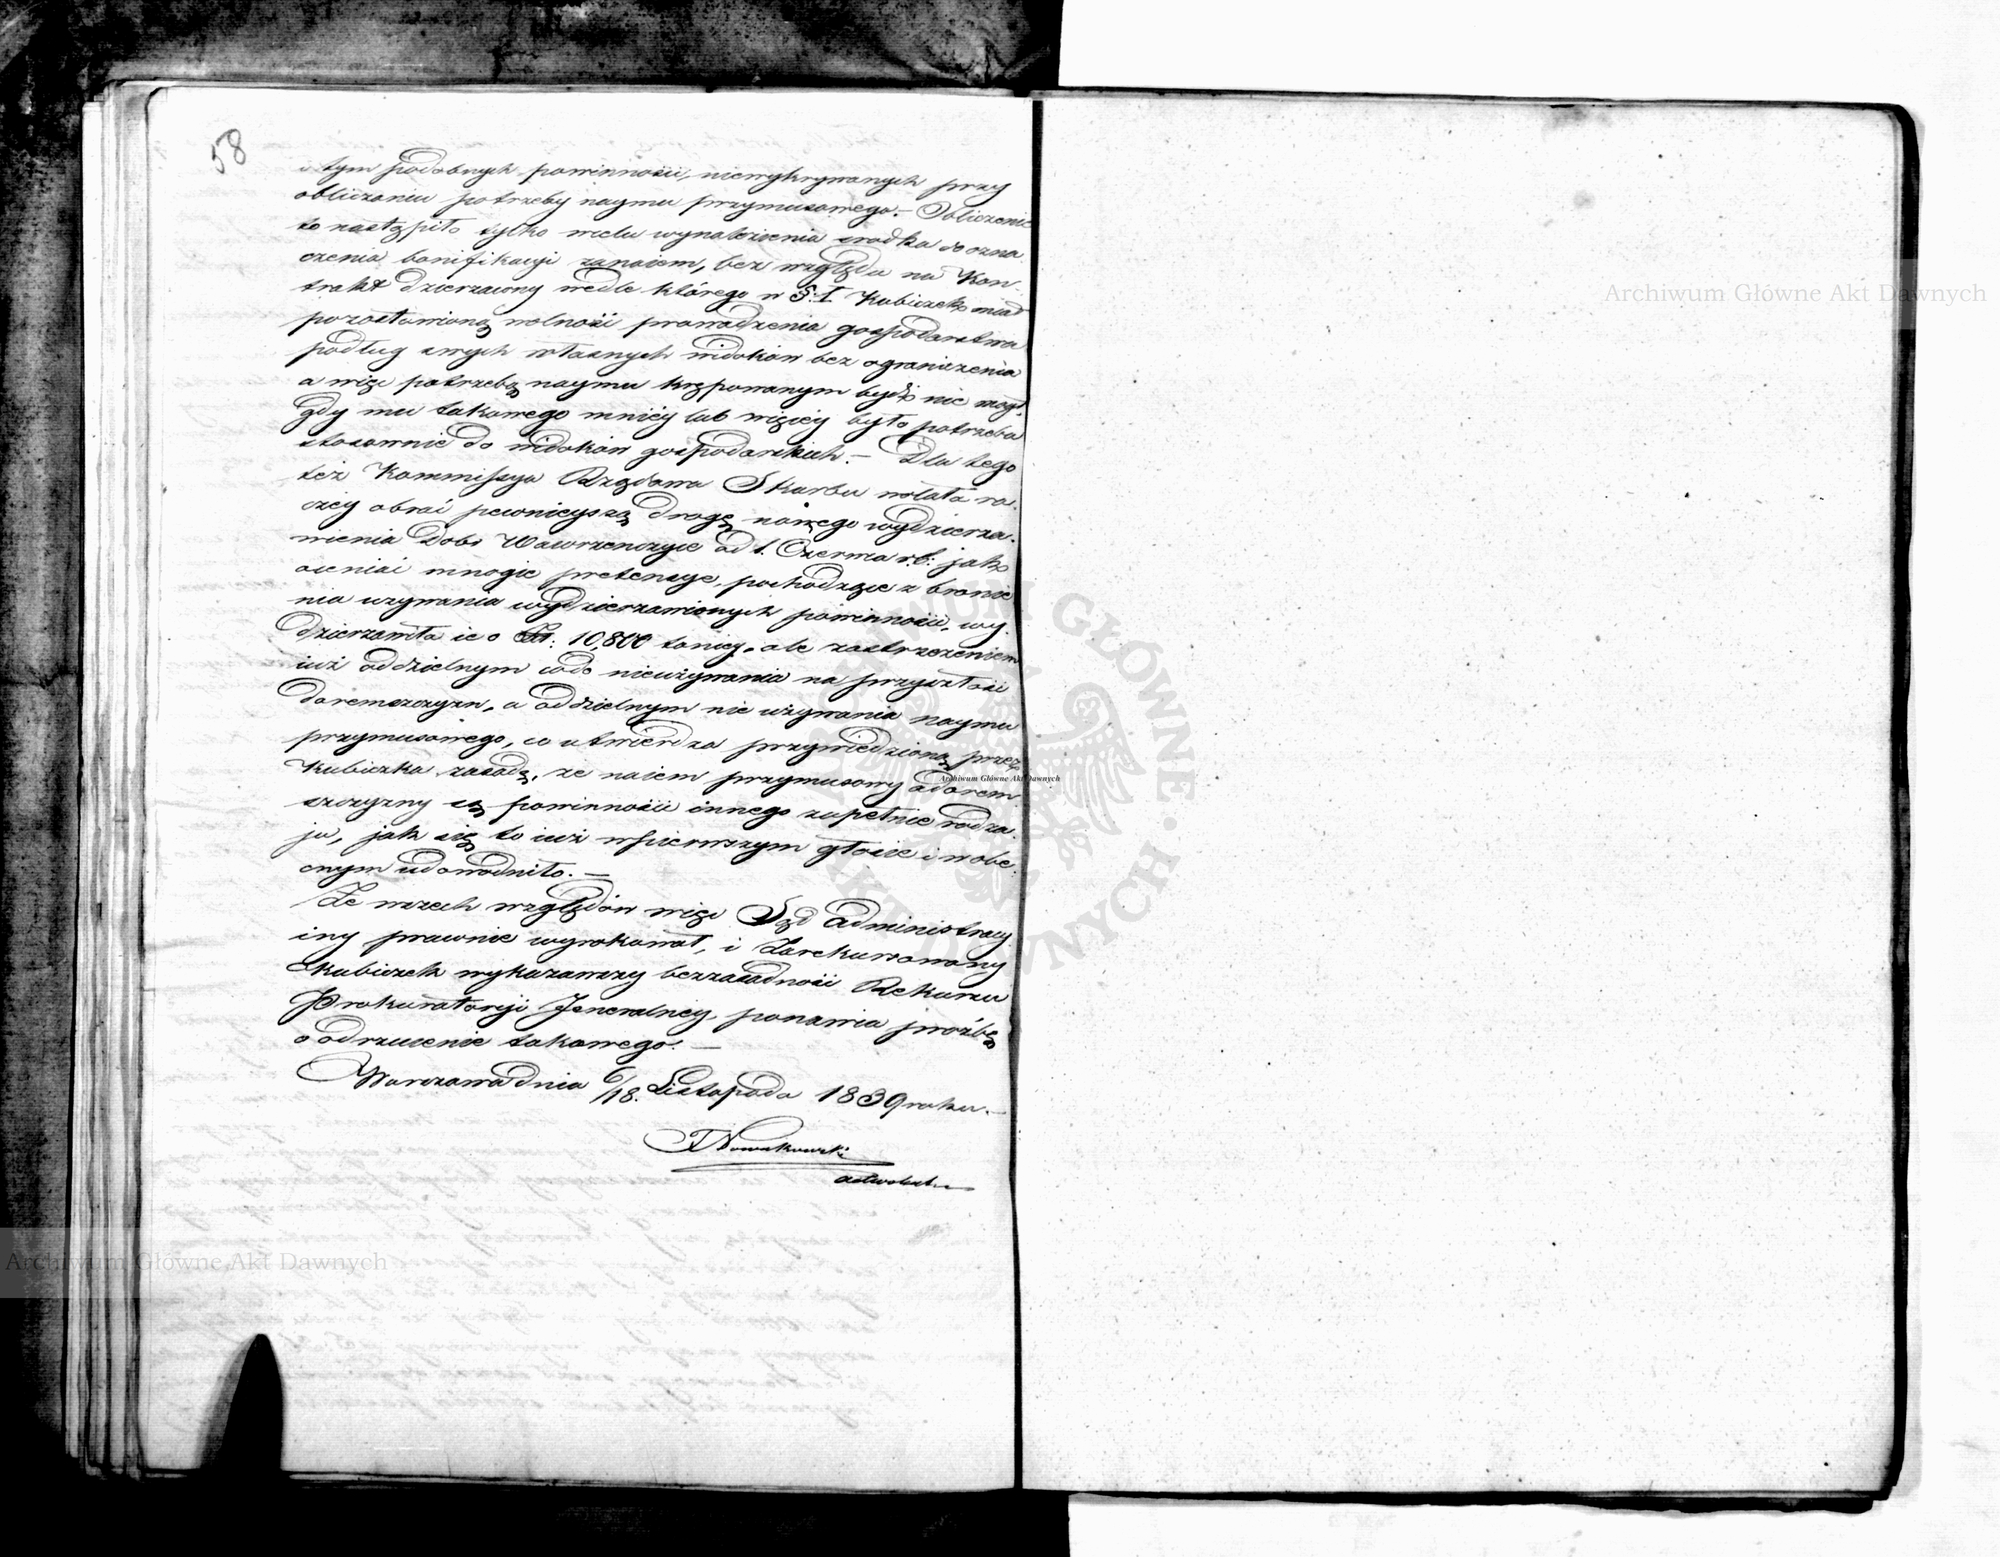 58
i tym podobnych powinności, niewykrywanych przy
obliczaniu potrzeby naymu przymusowego. – Obliczenie
to nastąpiło tylko w celu wynalezienia srodka do ozna
czenia bonifikacyi zanaiem, bez względu na Kon-
trakt dzierzawny wedle którego w §. I Kubiczek miał
pozostawioną wolność prowadzenia gospodarstwa
podług swych własnych widoków bez ograniczenia
a więc potrzebą naymu krępowanym bydź nie mogł,
gdy mu takowego mniéy lub więcéy było potrzeba
stosownie do widoków gospodarskich. – Dla tego
też Kommissya Rządowa Skarbu wolała ra-
czey obrać pewnieyszą drogę nowego wydzierza-
wienia Dobr Wawrzenczyce od 1. Czerwca r.b. jak
oceniać mnogie pretensye, pochodzące z bronie
nia uzywania wydzierzawionych powinności, wy-
dzierzawiła ie o 10,800 taniey, ale zastrzezeniem
iuż oddzielnym co do nieuzywania na przyszłość
daremszczyzn, a oddzielnym nie uzywania naymu
przymusowego, co utwierdza przywiedzioną przez
Kubiczka zasadę, ze naiem przymusowy a darem
szczyzny są powinności innego zupełnie rodza-
ju, jak się to iuż w pierwszym głosie i w obe-
cnym udowodniło. –
Ze wszech względów więc Sąd Administracy
iny prawnie wyrokował, i Zarekurowany
Kubiczek wykazawszy bezzasadność Rekursu
Prokuratoryi Jeneralney, ponawia prośbę
o odrzucenie takowego. –
Warszawa dnia 6/18. Listopada 1839 roku. –
T Nowakowski
adwokat
Archiwum Główne Akt Dawnych
Archiwum Główne Akt Dawnych
Archiwum Główne Akt Dawnych
ARCHIWUM GŁÓWNE AKT DAWNYCH